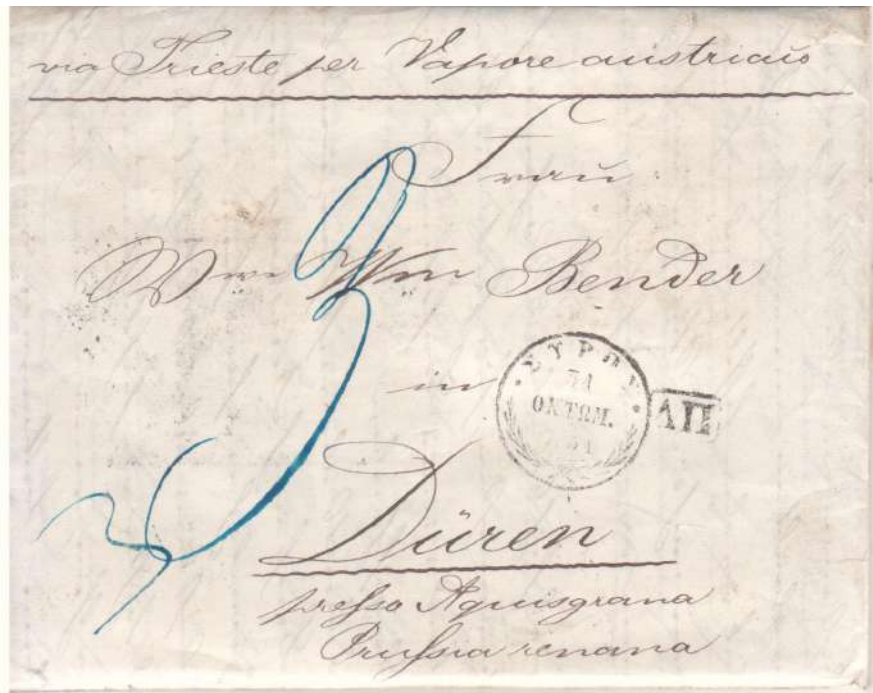 via Trieste per Vapore austriaco
Frau
Wwe Wm Bender
in
ΣΥΡΟΥ
31
ΟΚΤΩΜ.
51
ΛΠ
Düren
presso Aquisgrana
Prussia renana